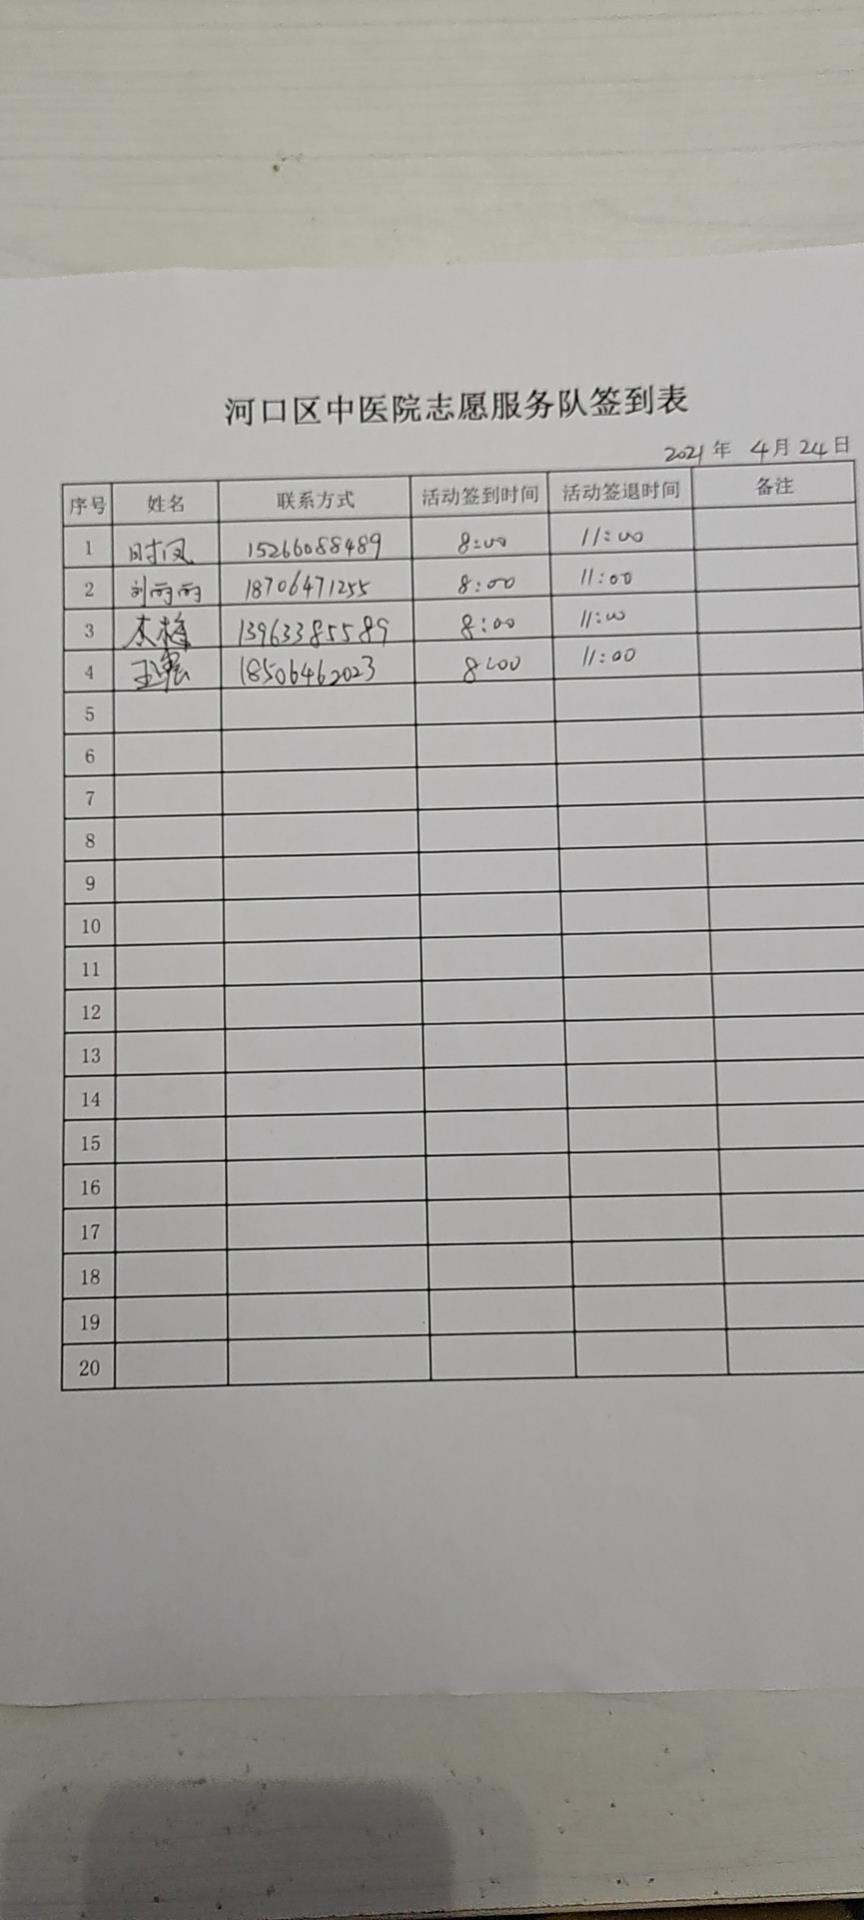 河口区中医院志愿服务队签到表
2021年 4月24日
序号 姓名 联系方式 活动签到时间 活动签退时间 备注
1 时凤 15266088489 8:00 11:00
2 刘雨雨 18706471255 8:00 11:00
3 13963385589 8:00 11:00
4 18506462023 8:00 11:00
5
6
7
8
9
10
11
12
13
14
15
16
17
18
19
20